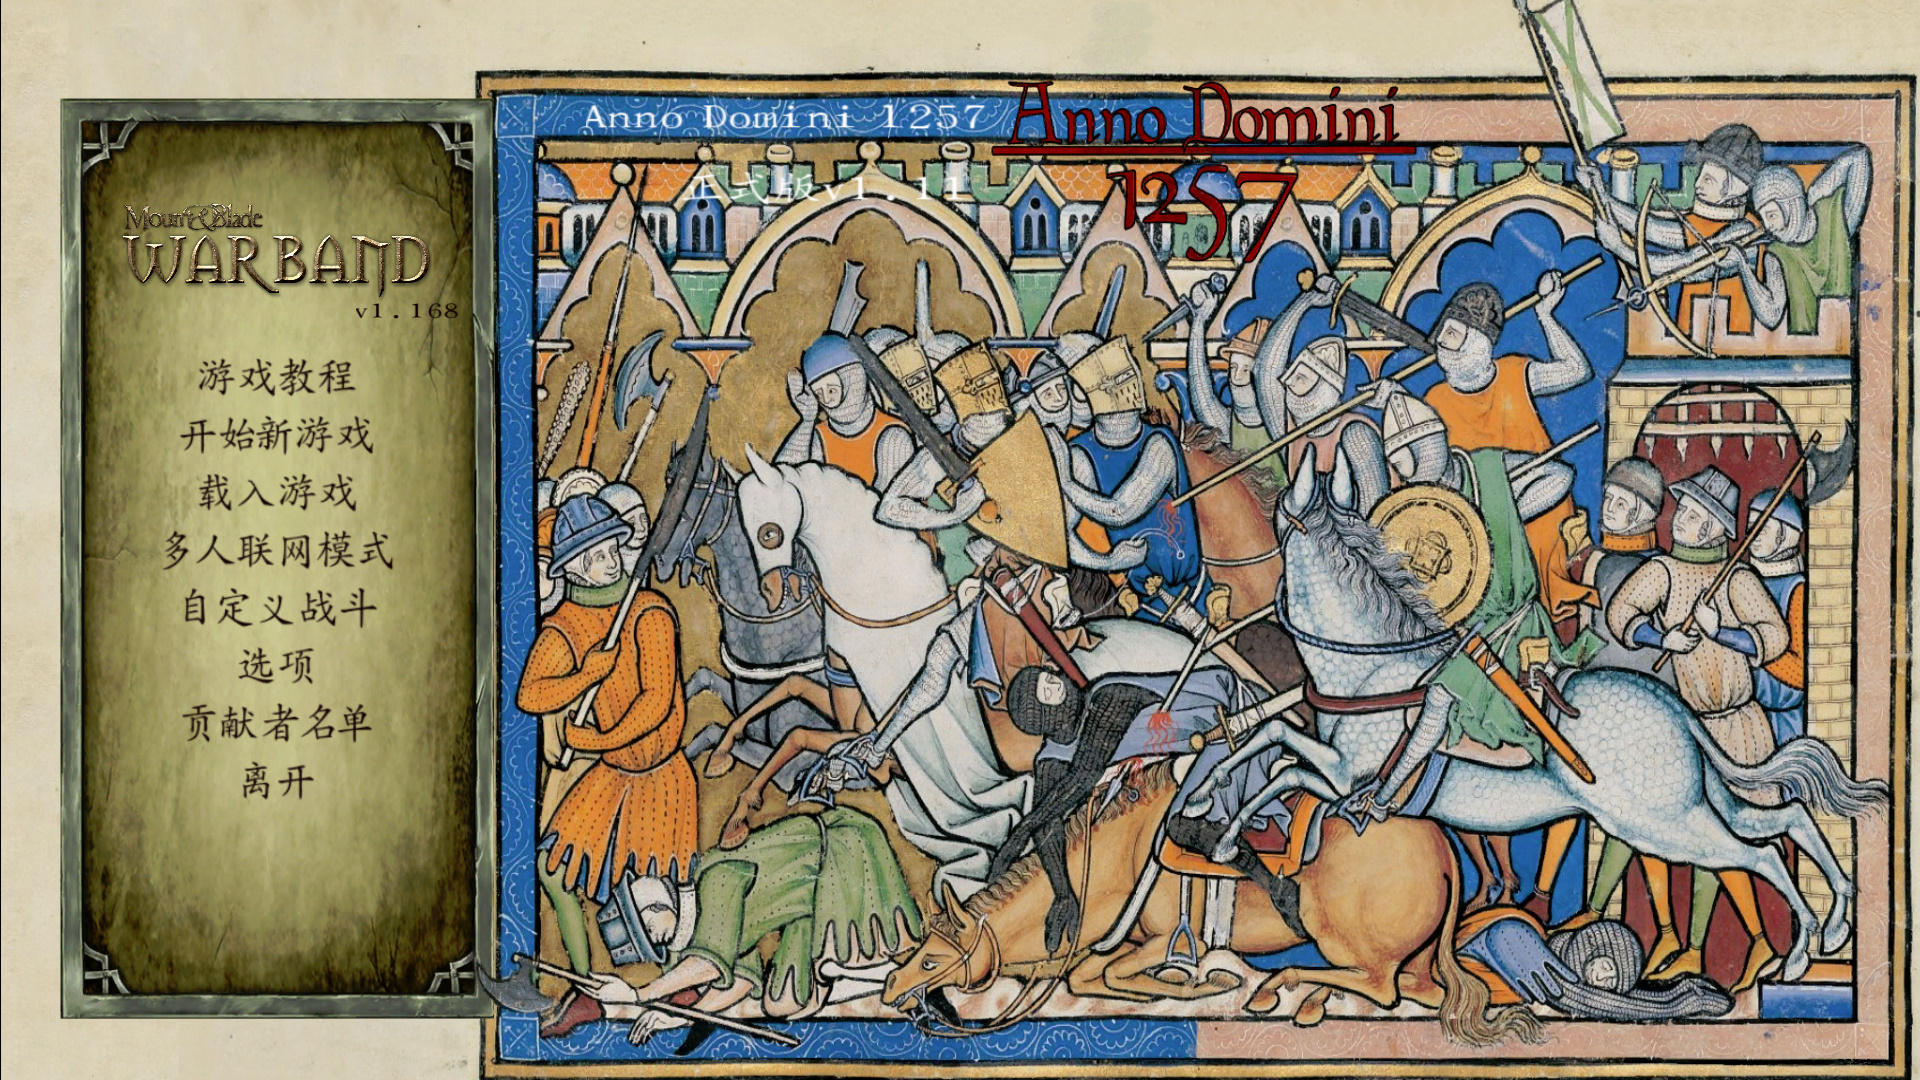 Mount&Blade
WARBAND
v1.168
游戏教程
开始新游戏
载入游戏
多人联网模式
自定义战斗
选项
贡献者名单
离开
Anno Domini 1257
正式版v1.11
Anno Domini
1257